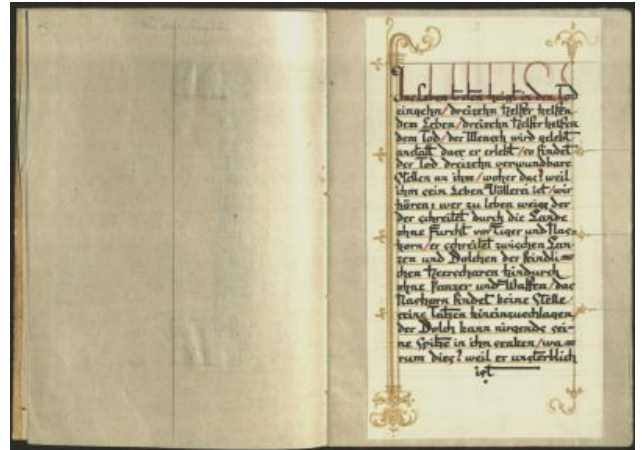 ins Leben treten heißt in den Tod
eingehn/dreizehn Helfer helfen
dem Leben/dreizehn Helfer helfen
dem Tod/der Mensch wird gelebt
anstatt dass er erlebt/so findet
der Tod dreizehn verwundbare
Stellen an ihm/woher das? weil
ihm sein Leben Völlerei ist/wir
hören: wer zu leben weiss der
der schreitet durch die Lande
ohne Furcht vor Tiger und Nas-
horn/er schreitet zwischen Lan-
zen und Dolchen der feindli-
chen Heerscharen hindurch
ohne Panzer und Waffen/das
Nashorn findet keine Stelle/
seine Tatzen hineinzuschlagen,
der Dolch kann nirgends sei-
ne Spitze in ihn senken/wa-
rum dies? weil er unsterblich
ist